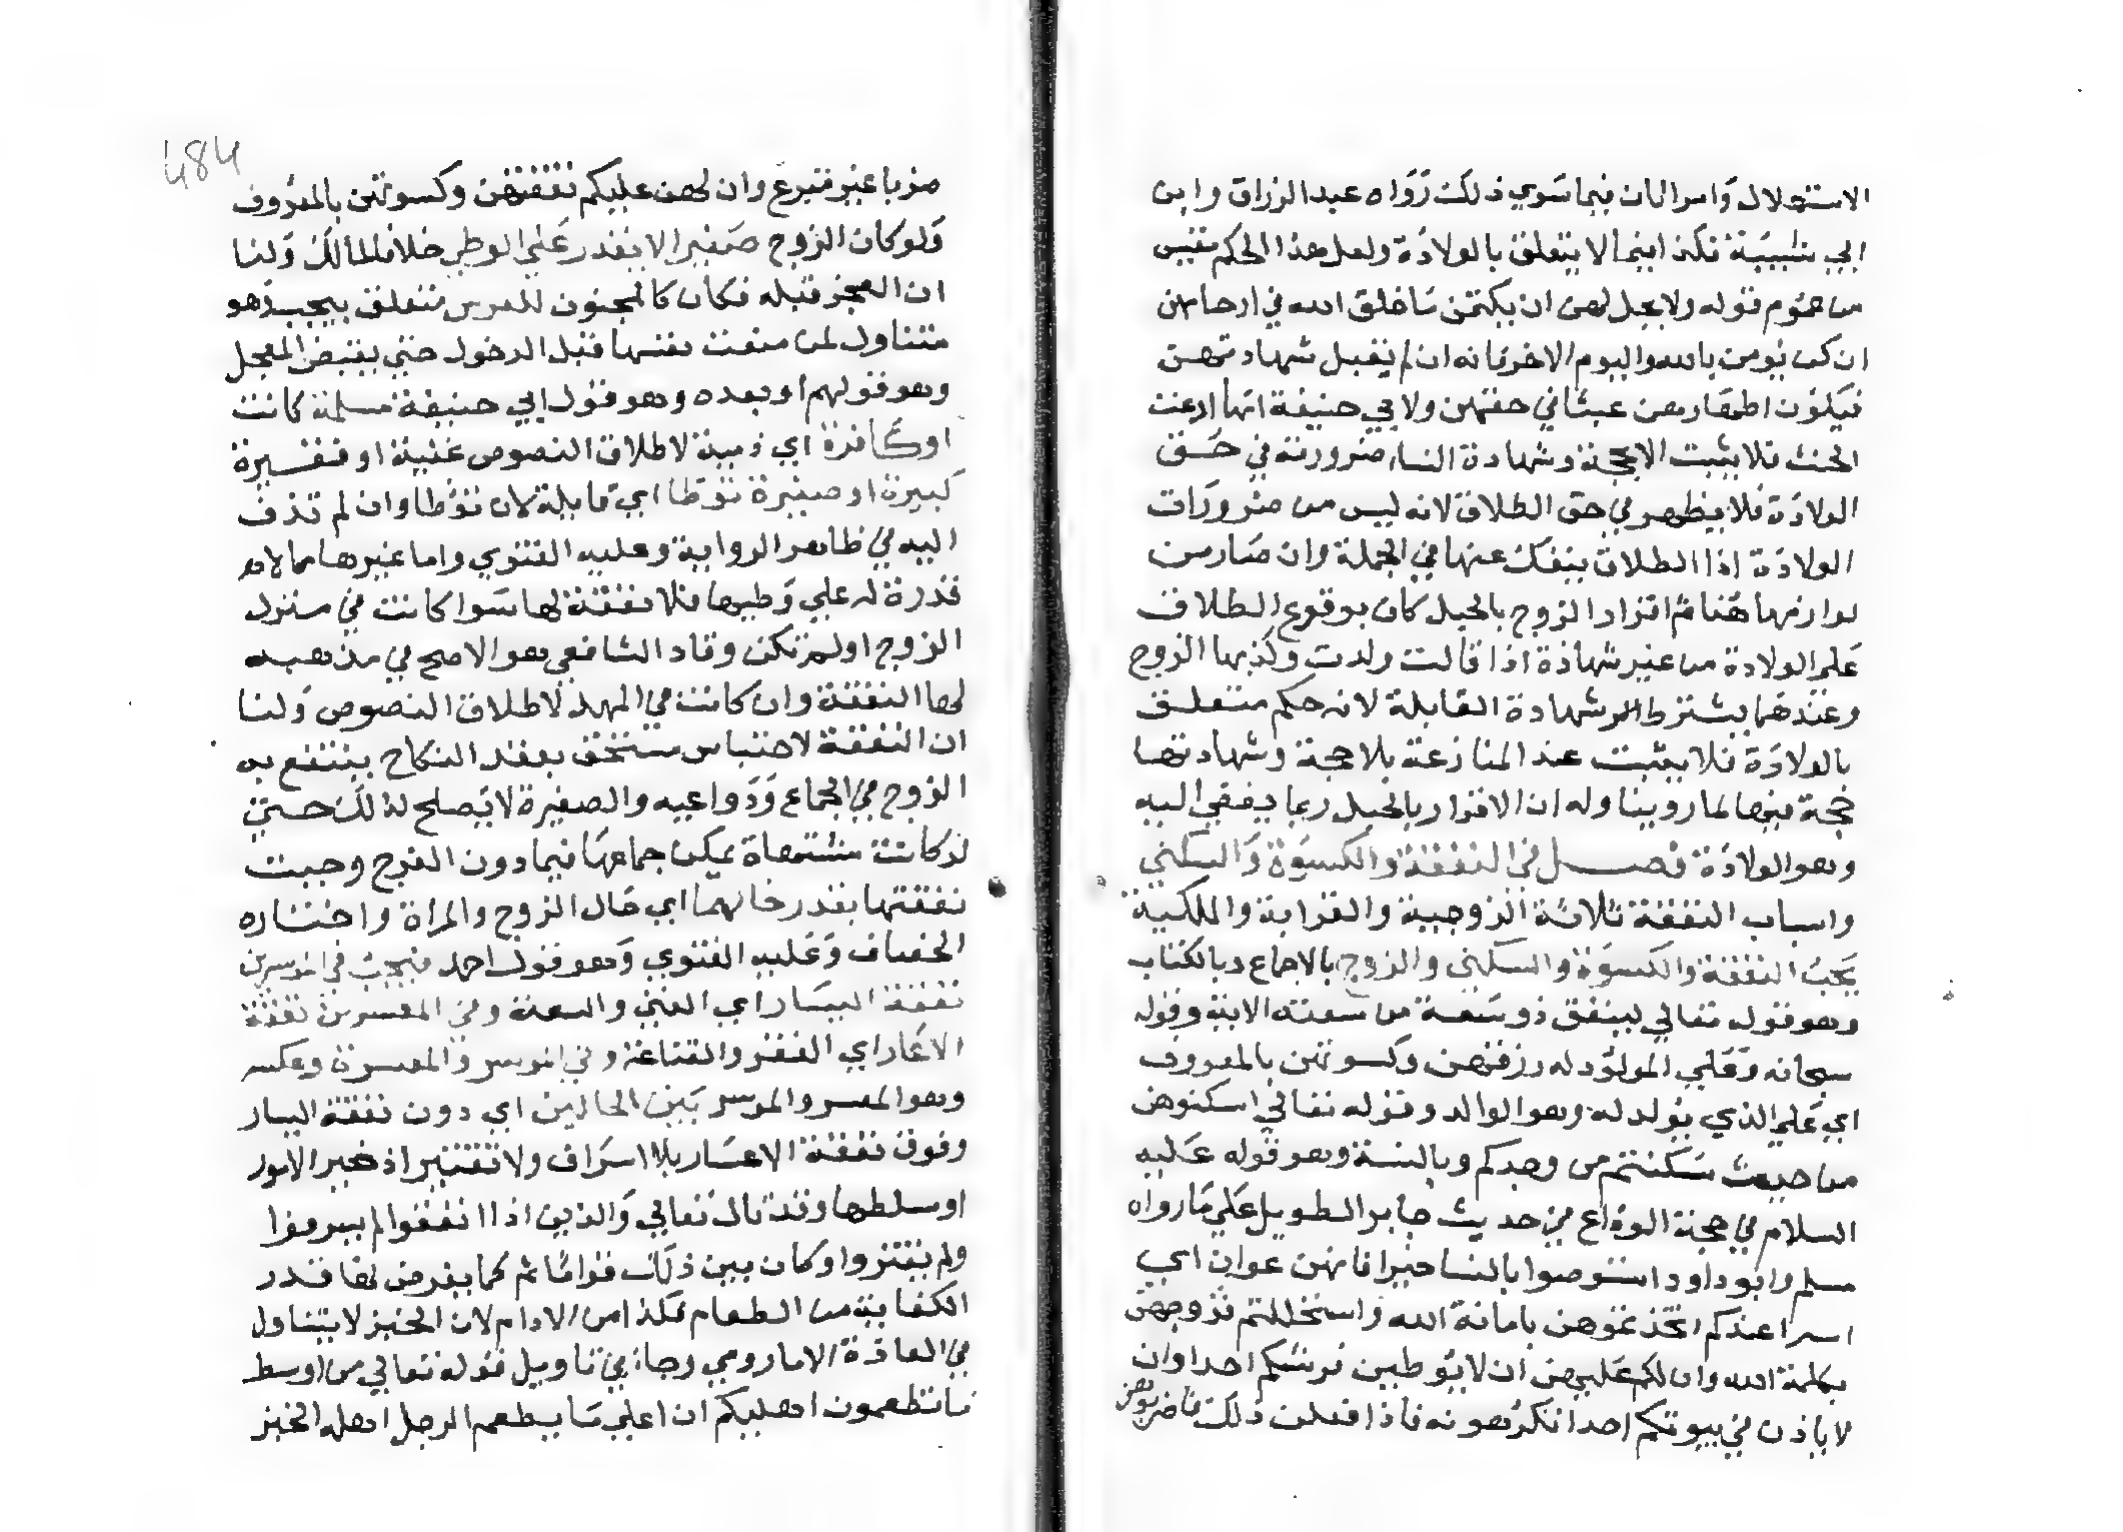 الاستهلال واسرالمان فيما سوي ذلك رواه عبد الرزاق وابن
ابي شيبة فكذا فيما لا يتعلق بالولادة ولعل هذا الحكم مقتبس
من عموم قوله ولا يحل لهن ان يكتمن ما خلق الله في ارحامهن
ان كن يومن بالله واليوم الاخر فانه ان لم يقبل شهادتهن
فيكون اظهارهن عبثا في حقهن ولابي حنيفة انها ادعت
الحنث فلا يثبت الا بحجة وشهادة النساء ضرورته في حق
الولادة فلا يظهر في حق الطلاق لانه ليس من ضرورات
الولادة اذا الطلاق ينفك عنها في الجملة وان صار من
لوازمها هنا ثم اقرار الزوج بالحبل كان بوقوع الطلاق
علي الولادة من غير شهادة اذا قالت ولدت وكذبها الزوج
وعندهما يشترط شهادة القابلة لانه حكم متعلق
بالولادة فلا يثبت عند المنازعة بلا حجة وشهادتها
حجة فيها لما روينا وله ان الاقرار بالحبل ربما يفضي اليه
وهو الولادة فصل في النفقة والكسوة والسكني
واسباب النفقة ثلاثة الزوجية والقرابة والملكية
يجب النفقة والكسوة والسكني والزوج بالاجماع وبالكتاب
وهو قوله تعالي لينفق ذو سعة من سعته الاية وقوله
سبحانه وعلي المولود له رزقهن وكسوتهن بالمعروف
اي علي الذي يولد له وهو الوالد وقوله تعالي اسكنوهن
من حيث سكنتم من وجدكم وبالسنة وهو قوله عليه
السلام في حجة الوداع في حديث جابر الطويل علي ما رواه
مسلم وابو داود استوصوا بالنسا خيرا فانهن عوان اي
اسرا عندكم اتخذتموهن بامانة الله واستحللتم فروجهن
بكلمة الله وان لكم عليهن ان لا يوطين فرشكم احدا وان
لا ياذن في بيوتكم احدا تكرهونه فاذا فعلن ذلك فاضربوهن
ضربا غير مبرح وان لهن عليكم نفقتهن وكسوتهن بالمعروف
ولو كان الزوج صغيرا لا يقدر علي الوطي خلافا لمالك ولنا
ان العجز قبله فكان كالمجنون للعرس متعلق بيجب وهو
متناول لمن منعت نفسها قبل الدخول حتي يقبض المعجل
وهو قولهم او بعده وهو قول ابي حنيفة مسلمة كانت
او كافرة اي ذمية لاطلاق النصوص غنية او فقيرة
كبيرة او صغيرة توطا اي قابلة لان توطا وان لم تزف
اليه في ظاهر الرواية وعليه الفتوي واما غيرها مما لا
قدرة له علي وطيها فلا نفقة لها سوا كانت في منزل
الزوج او لم تكن وقال الشافعي هو الاصح في مذهبه
لها النفقة وان كانت في المهد لاطلاق النصوص ولنا
ان النفقة لاحتباس مستحق بعقد النكاح ينتفع به
الزوج في الجماع ودواعيه والصغيرة لا يصلح لذلك حتي
لو كانت مشتهاة يمكن جماعها فيما دون الفرج وجبت
نفقتها بقدر حالهما اي حال الزوج والمراة واختاره
الخصاف وعليه الفتوي وهو قول احمد فيجب في الموسرين
نفقة اليسار اي الغني والسعة وفي المعسرين نفقة
الاعسار اي الفقر والقناعة وفي الموسر والمعسرة وعكسه
وهو المعسر والموسر بين الحالين اي دون نفقة اليسار
وفوق نفقة الاعسار بلا اسراف ولا تقتير اذ خير الامور
اوسطها وقد قال تعالي والذين اذا انفقوا لم يسرفوا
ولم يقتروا وكان بين ذلك قواما ثم كما يفرض لها قدر
الكفاية من الطعام فكذا من الادام لان الخبز لا يتناول
في العادة الا مادوما وجا في تاويل قوله تعالي من اوسط
ما تطعمون اهليكم ان اعلي ما يطعم الرجل اهله الخبز
484